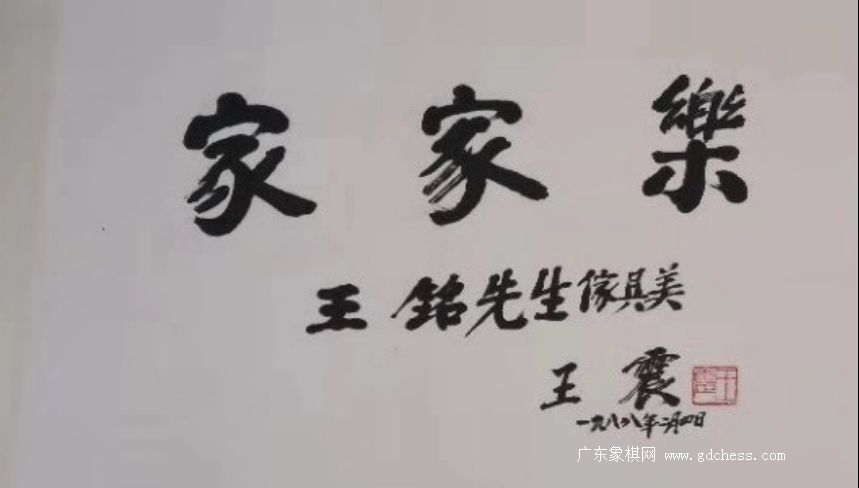 家家樂
王銘先生傢具美
王震
一九八八年二月四日
广东象棋网 www.gdchess.com